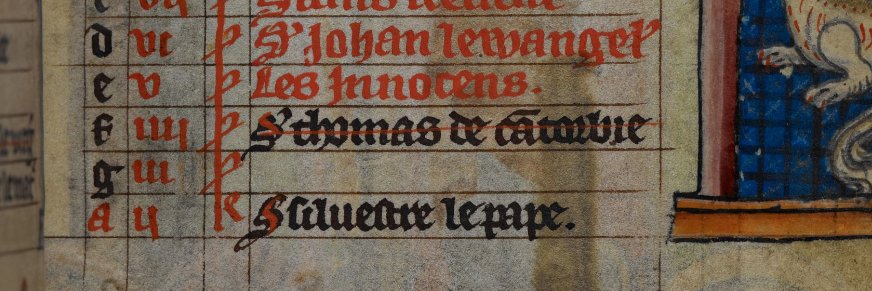 d vi p S' Johan lewangel'
e v p Les Innocens.
f iiij p S' thomas de cātorbie
g iii p
A ij k S' siluestre le pape.